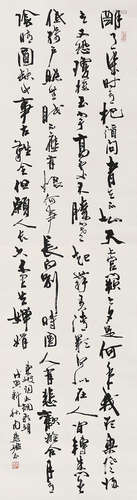 明月幾時有把酒問青天不知天上宮闕今夕是何年我欲乘風歸
去又恐瓊樓玉宇高處不勝寒起舞弄清影何似在人間轉朱閣
低綺戶照無眠不應有恨何事長向別時圓人有悲歡離合月有
陰晴圓缺此事古難全但願人長久千里共嬋娟
東坡詞水調歌頭